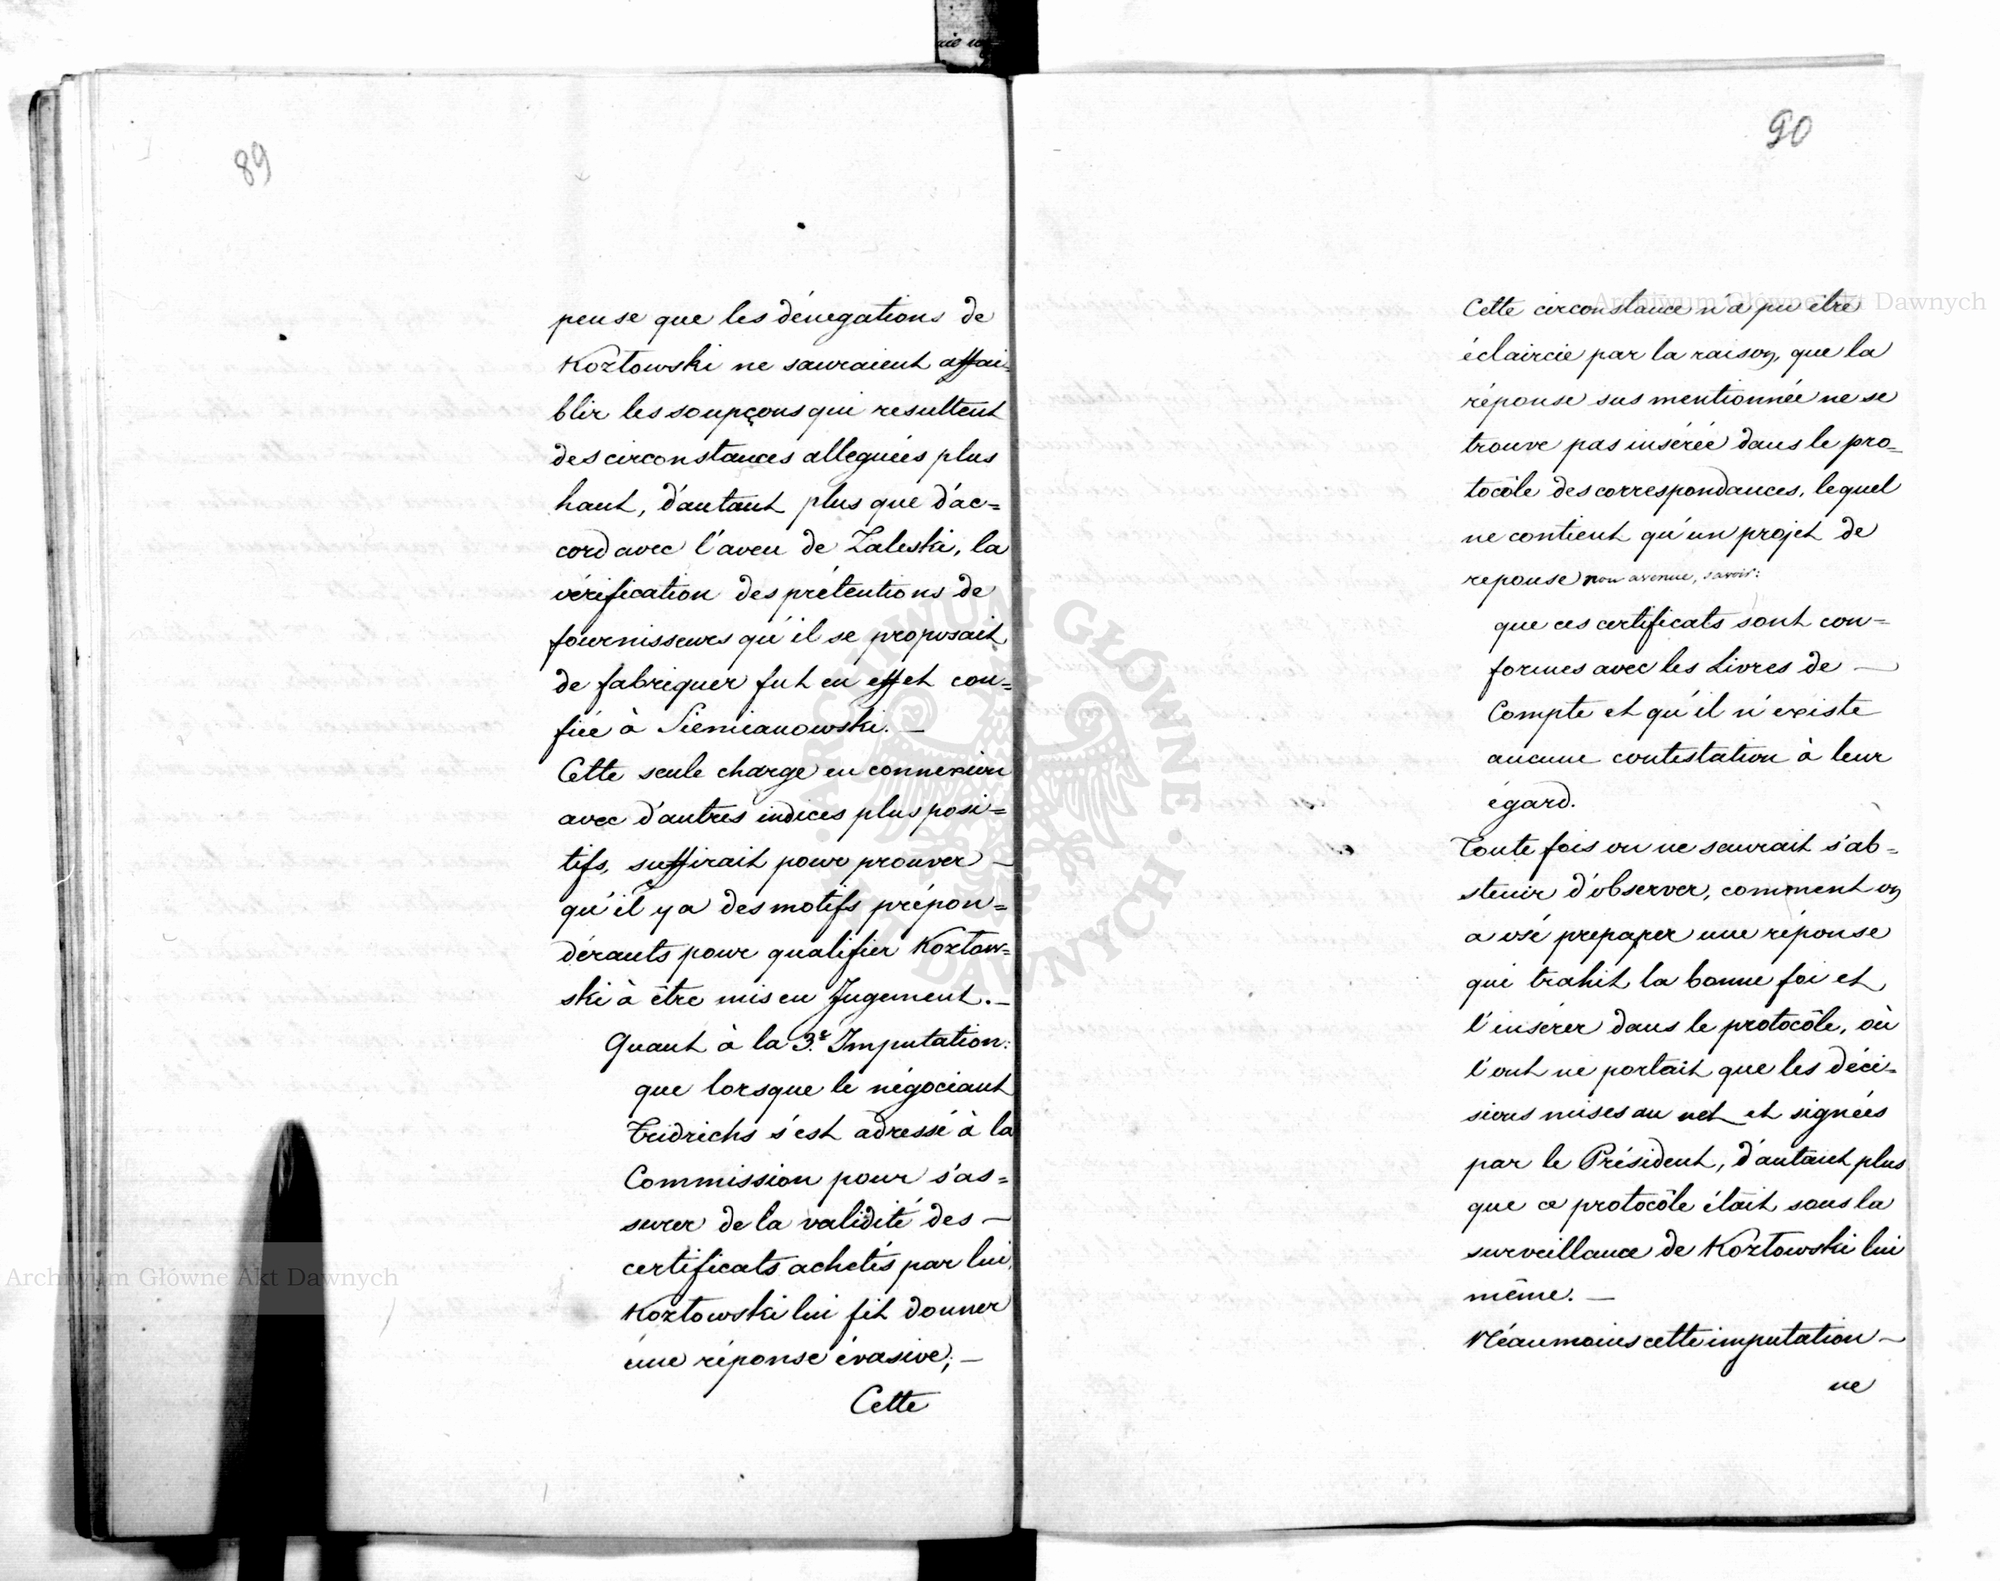 89
pense que les dénégations de
Kozłowski ne sauraient affai=
blir les soupçons qui resultent
des circonstances alleguées plus
haut, d'autant plus que d'ac=
cord avec l'aveu de Zaleski, la
vérification des prétentions de
fournisseurs qu'il se proposait
de fabriquer fut en effet con=
fiée à Siemianowski. —
Cette seule charge en connexion
avec d'autres indices plus posi=
tifs, suffirait pour prouver —
qu'il y a des motifs prépon=
dérants pour qualifier Kozłow=
ski à être mis en Jugement. —
Quant à la 3.e Imputation:
que lorsque le négociant
Fridrichs s'est adressé à la
Commission pour s'as=
surer de la validité des —
certificats achetés par lui,
Kozłowski lui fit donner
une réponse évasive; —
Cette
90
Cette circonstance n'a pu être
éclaircie par la raison, que la
réponse sus mentionnée ne se
trouve pas insérée dans le pro=
tocôle des correspondances, lequel
ne contient qu'un projet de
reponse non avenue, savoir:
que ces certificats sont con=
formes avec les Livres de —
Compte et qu'il n'existe
aucune contestation à leur
égard.
Toute fois on ne saurait s'ab=
stenir d'observer, comment on
a osé preparer une réponse
qui trahit la bonne foi et
l'insérer dans le protocôle, où
l'ont ne portait que les déci=
sions mises au net et signées
par le Président, d'autant plus
que ce protocôle était sous la
surveillance de Kozłowski lui
même. —
Néanmoins cette imputation —
ne
Archiwum Główne Akt Dawnych
Archiwum Główne Akt Dawnych
ARCHIWUM GŁÓWNE AKT DAWNYCH